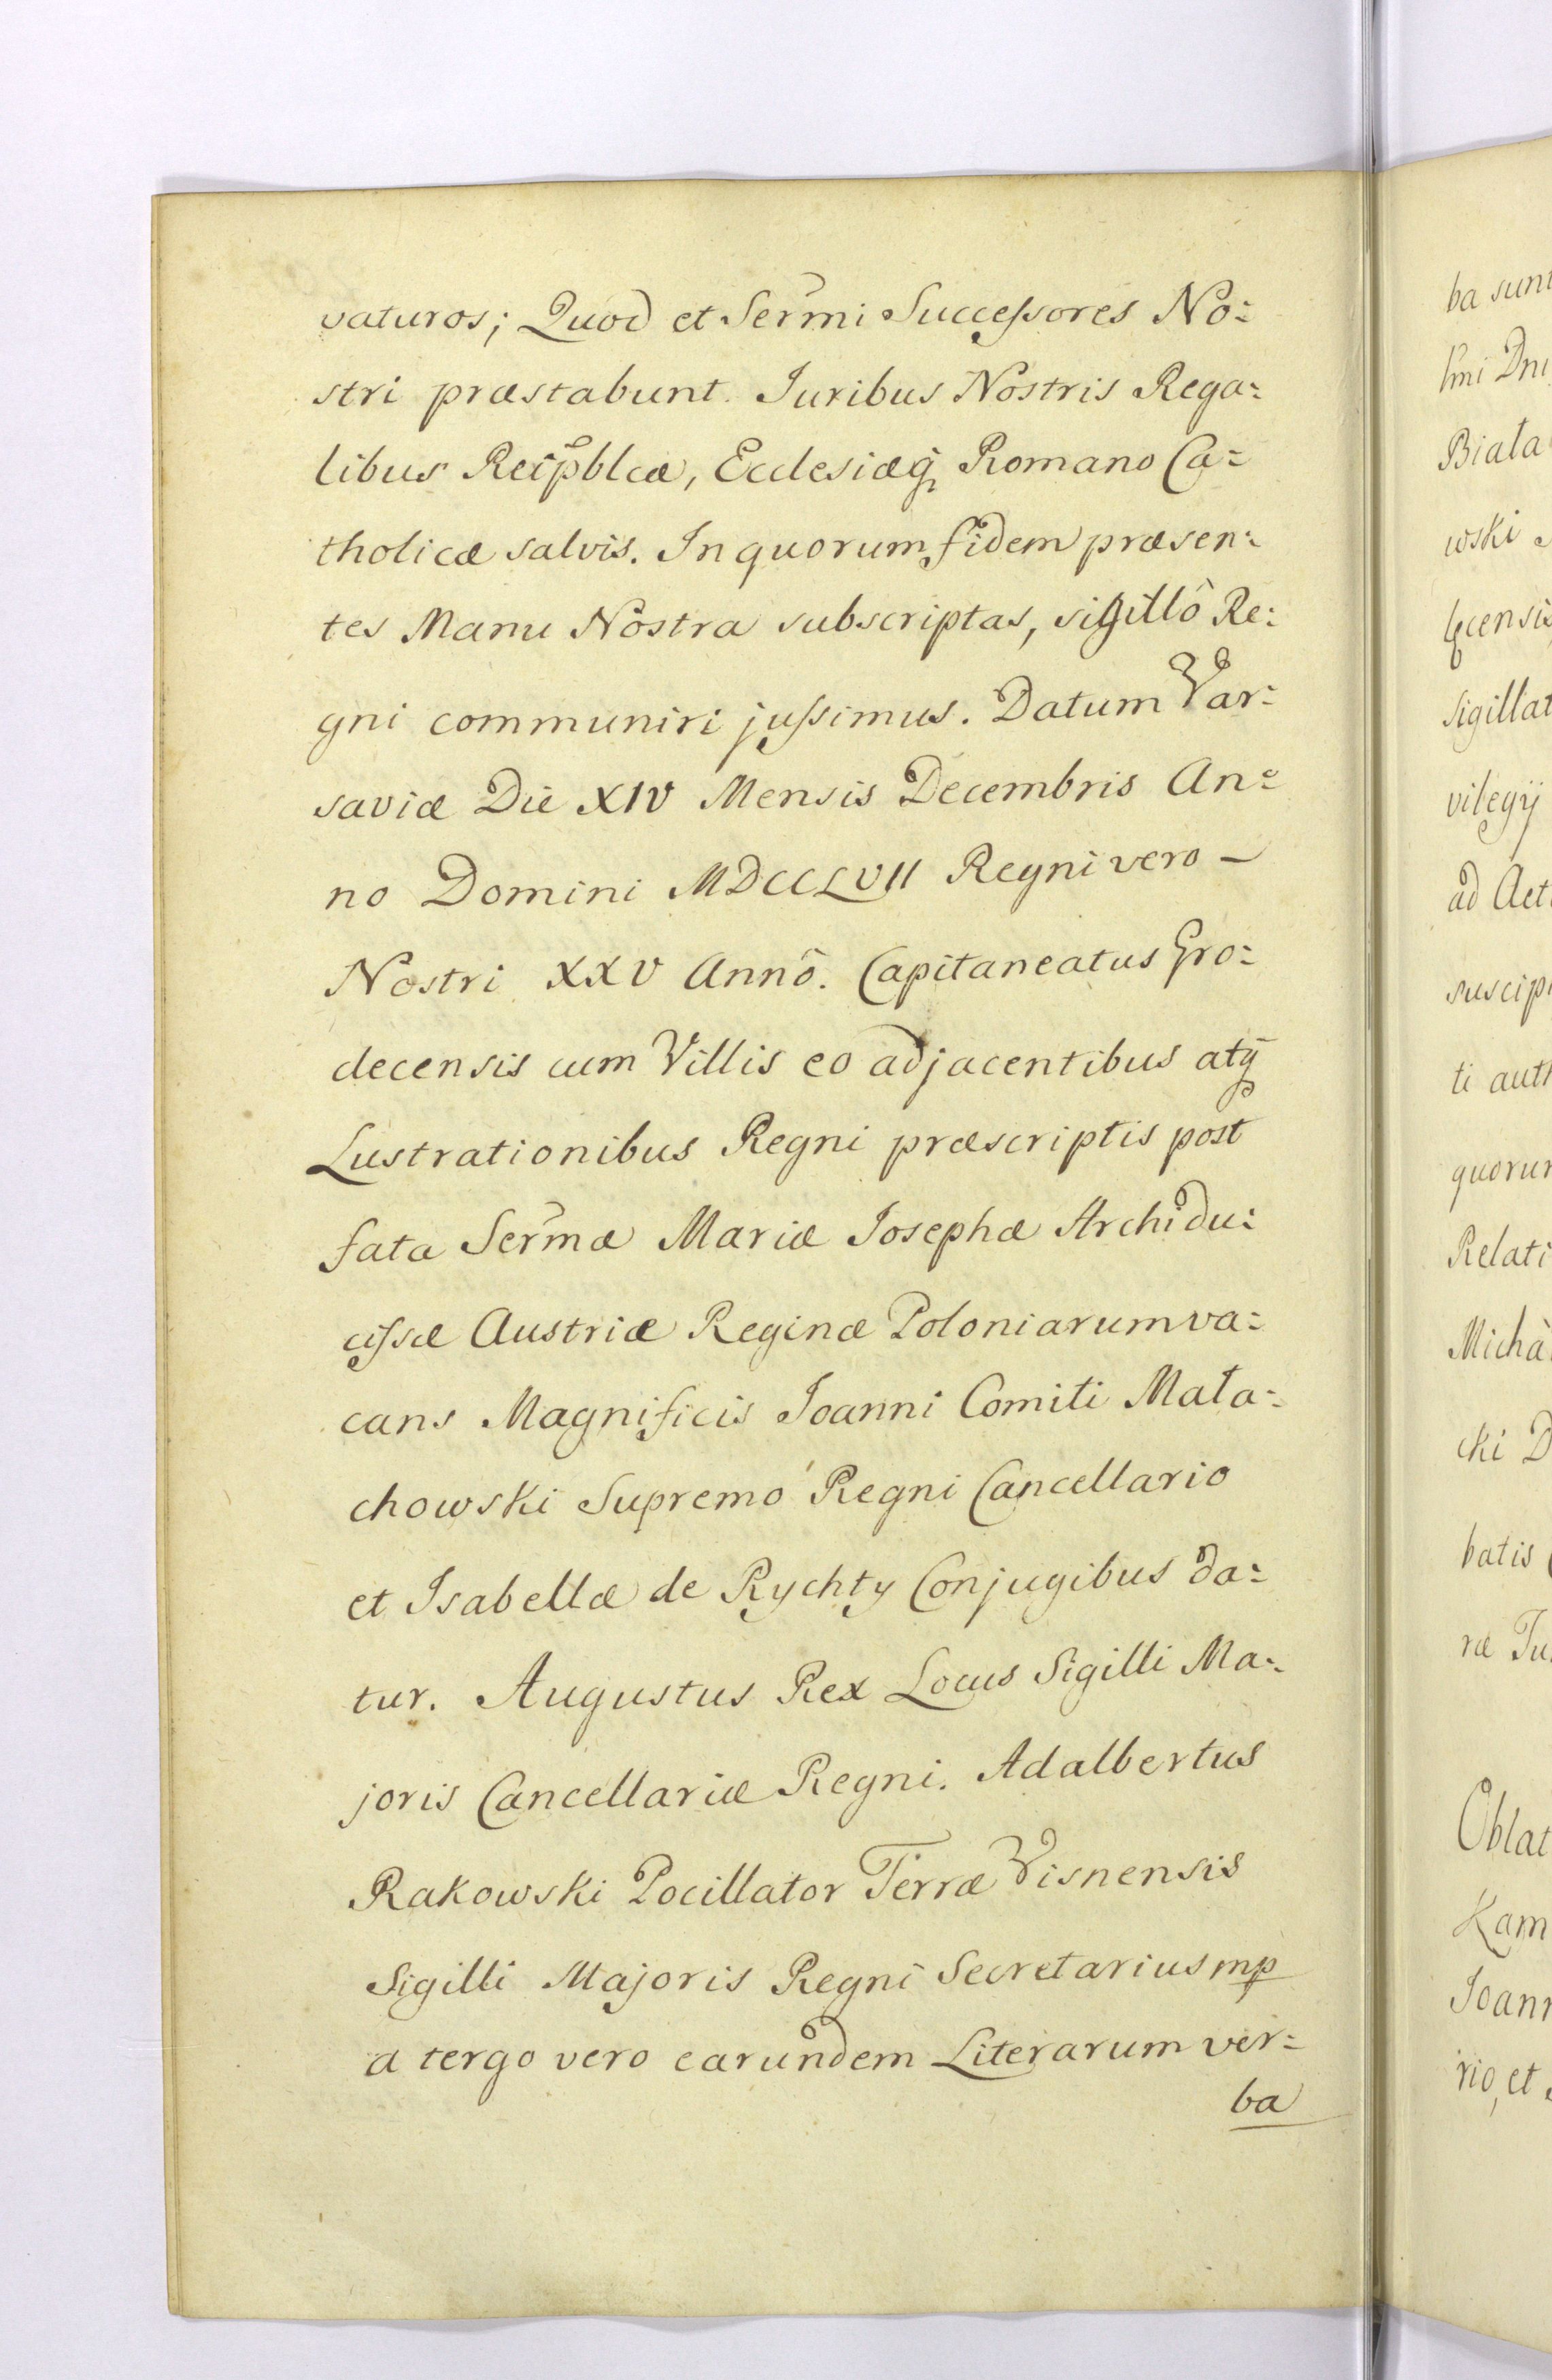 vaturos; Quod et Serm̃i Successores No=
stri præstabunt. Iuribus Nostris Rega=
libus Reip̃blcæ, Ecclesiæq̃ Romano Ca=
tholicæ salvis. In quorum fidem præsen=
tes Manu Nostra subscriptas, sigillô Re=
gni communiri jussimus. Datum Var=
saviæ Die XIV Mensis Decembris An=
no Domini MDCCLVII Regni vero –
Nostri XXV Annô. Capitaneatus Gro=
decensis cum Villis eo adjacentibus atq̃
Lustrationibus Regni præscriptis post
fata Serm̃æ Mariæ Iosephæ Archidu=
cissæ Austriæ Reginæ Poloniarum va=
cans Magnificis Ioanni Comiti Mała=
chowski Supremo Regni Cancellario
et Isabellæ de Rychty Conjugibus da=
tur. Augustus Rex Locus Sigilli Ma=
joris Cancellariæ Regni. Adalbertus
Rakowski Pocillator Terræ Visnensis
Sigilli Majoris Regni Secretarius mp
a tergo vero earundem Literarum ver=
ba
ba sunt
Biała
wski
sigillat
vilegij
ad Act
suscip
ti auth
quorum
Relati
Micha
cki D
batis
ræ Iu
Oblat
Kam
Ioann
rio, et